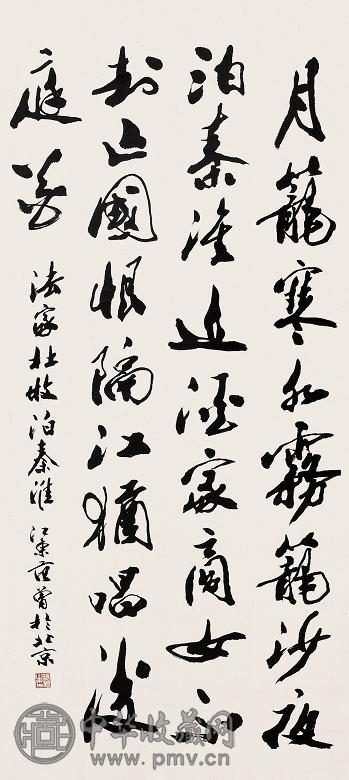 月籠寒水霧籠沙夜
泊秦淮近酒家商女不
知亡國恨隔江猶唱後
庭花
法家杜牧泊秦淮 江东范曾於北京
中华收藏网
www.pmv.cn